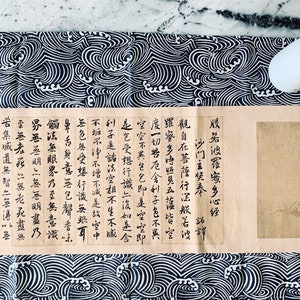 般若波羅蜜多心經
沙門玄奘奉 詔譯
觀自在菩薩行深般若波
羅蜜多時照見五蘊皆空
度一切苦厄舍利子色不異
空空不異色色即是空空即
是色受想行識亦復如是舍
利子是諸法空相不生不滅
不垢不淨不增不減是故空中
無色無受想行識無眼耳
鼻舌身意無色聲香味
觸法無眼界乃至無意識
界無無明亦無無明盡乃
至無老死亦無老死盡無
苦集滅道無智亦無得以無